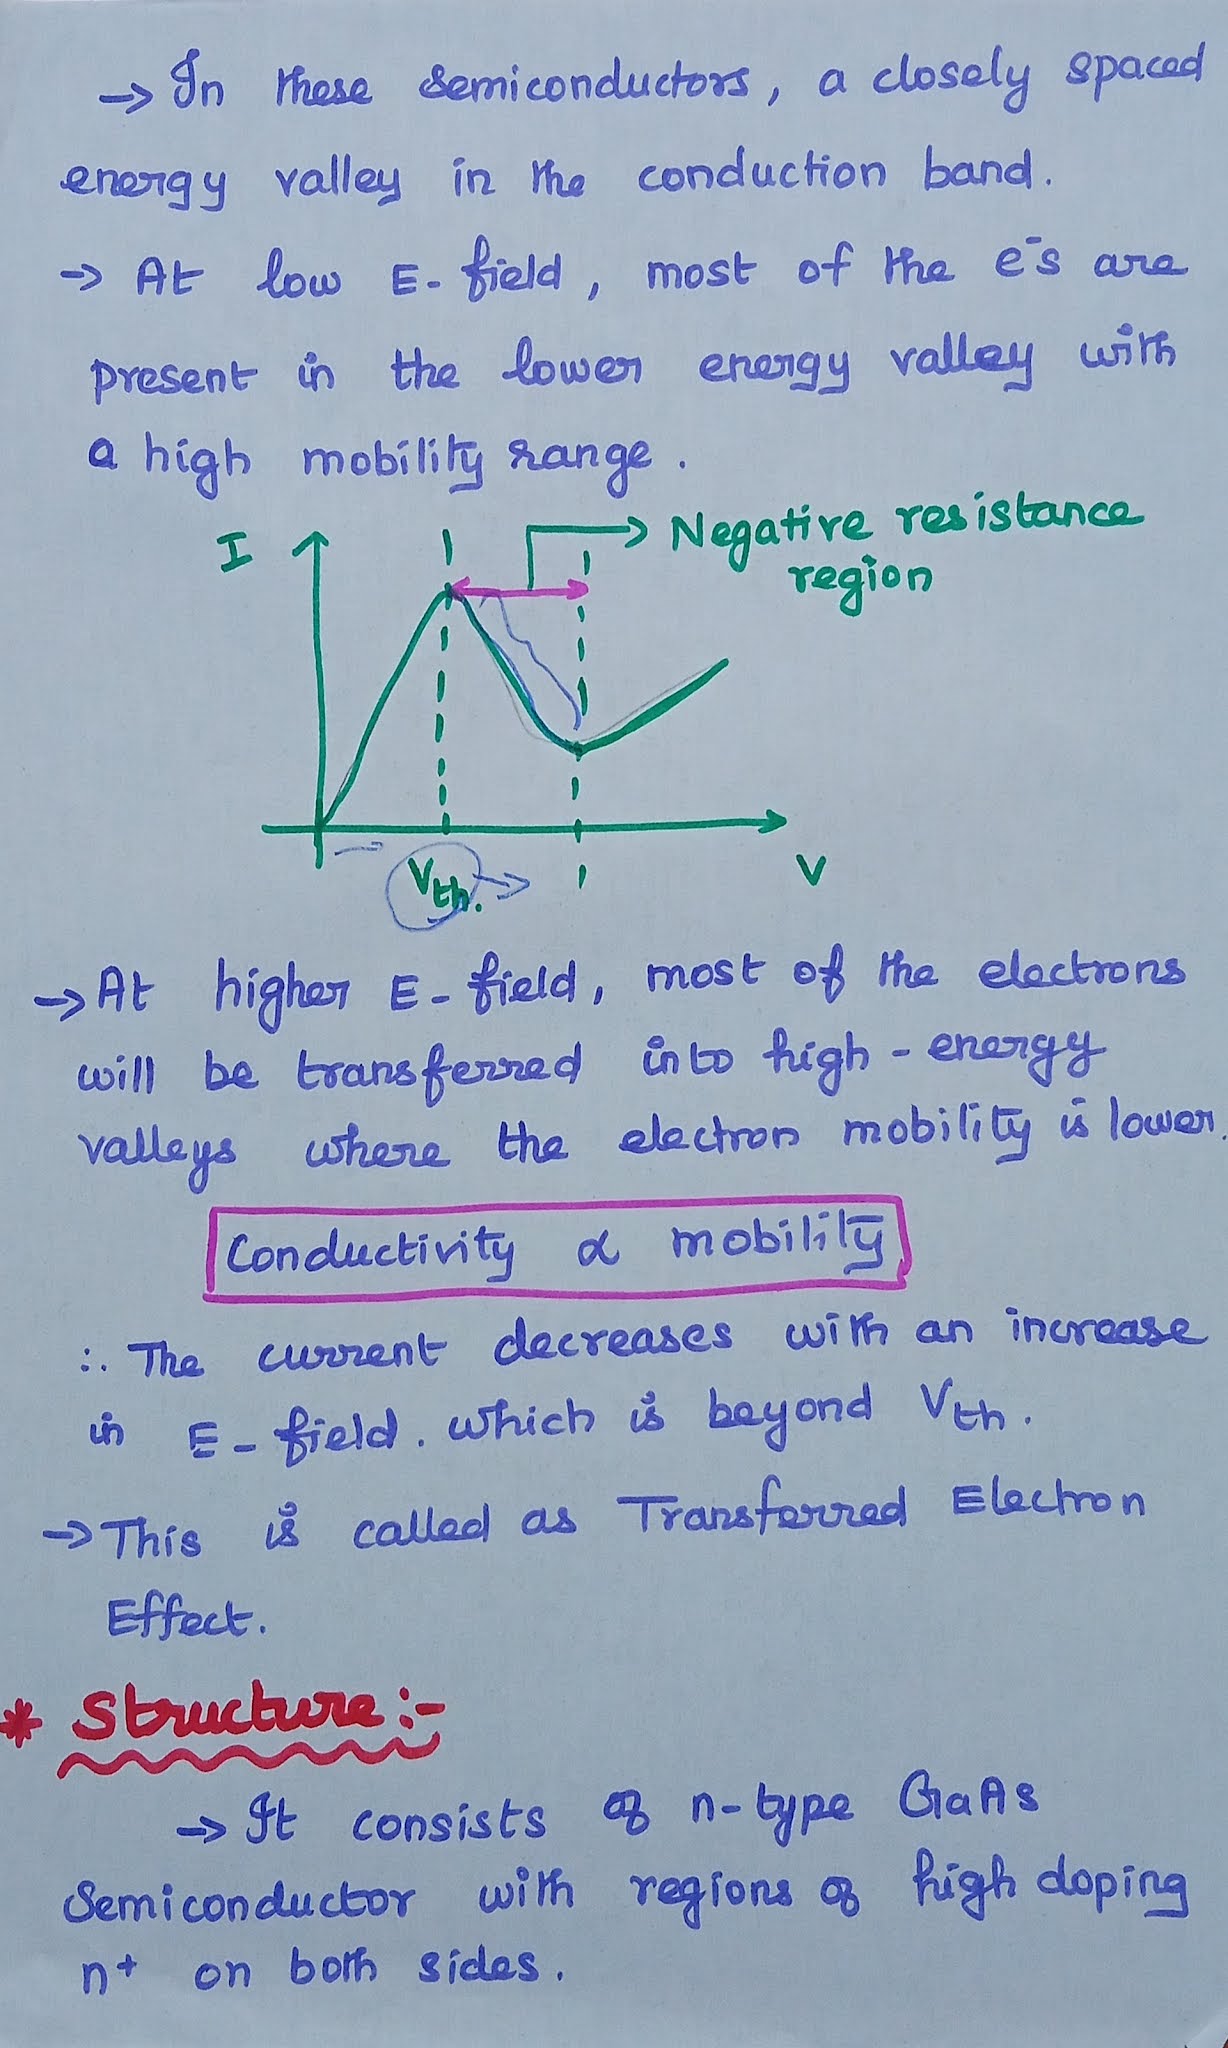 → In these semiconductors, a closely spaced
energy valley in the conduction band.
→ At low E-field, most of the e⁻s are
present in the lower energy valley with
a high mobility range.
I
→ Negative resistance
region
Vth.
V
→ At higher E-field, most of the electrons
will be transferred into high-energy
valleys where the electron mobility is lower.
Conductivity ∝ mobility
∴ The current decreases with an increase
in E-field. which is beyond Vth.
→ This is called as Transferred Electron
Effect.
* Structure:-
→ It consists of n-type GaAs
Semiconductor with regions of high doping
n+ on both sides.